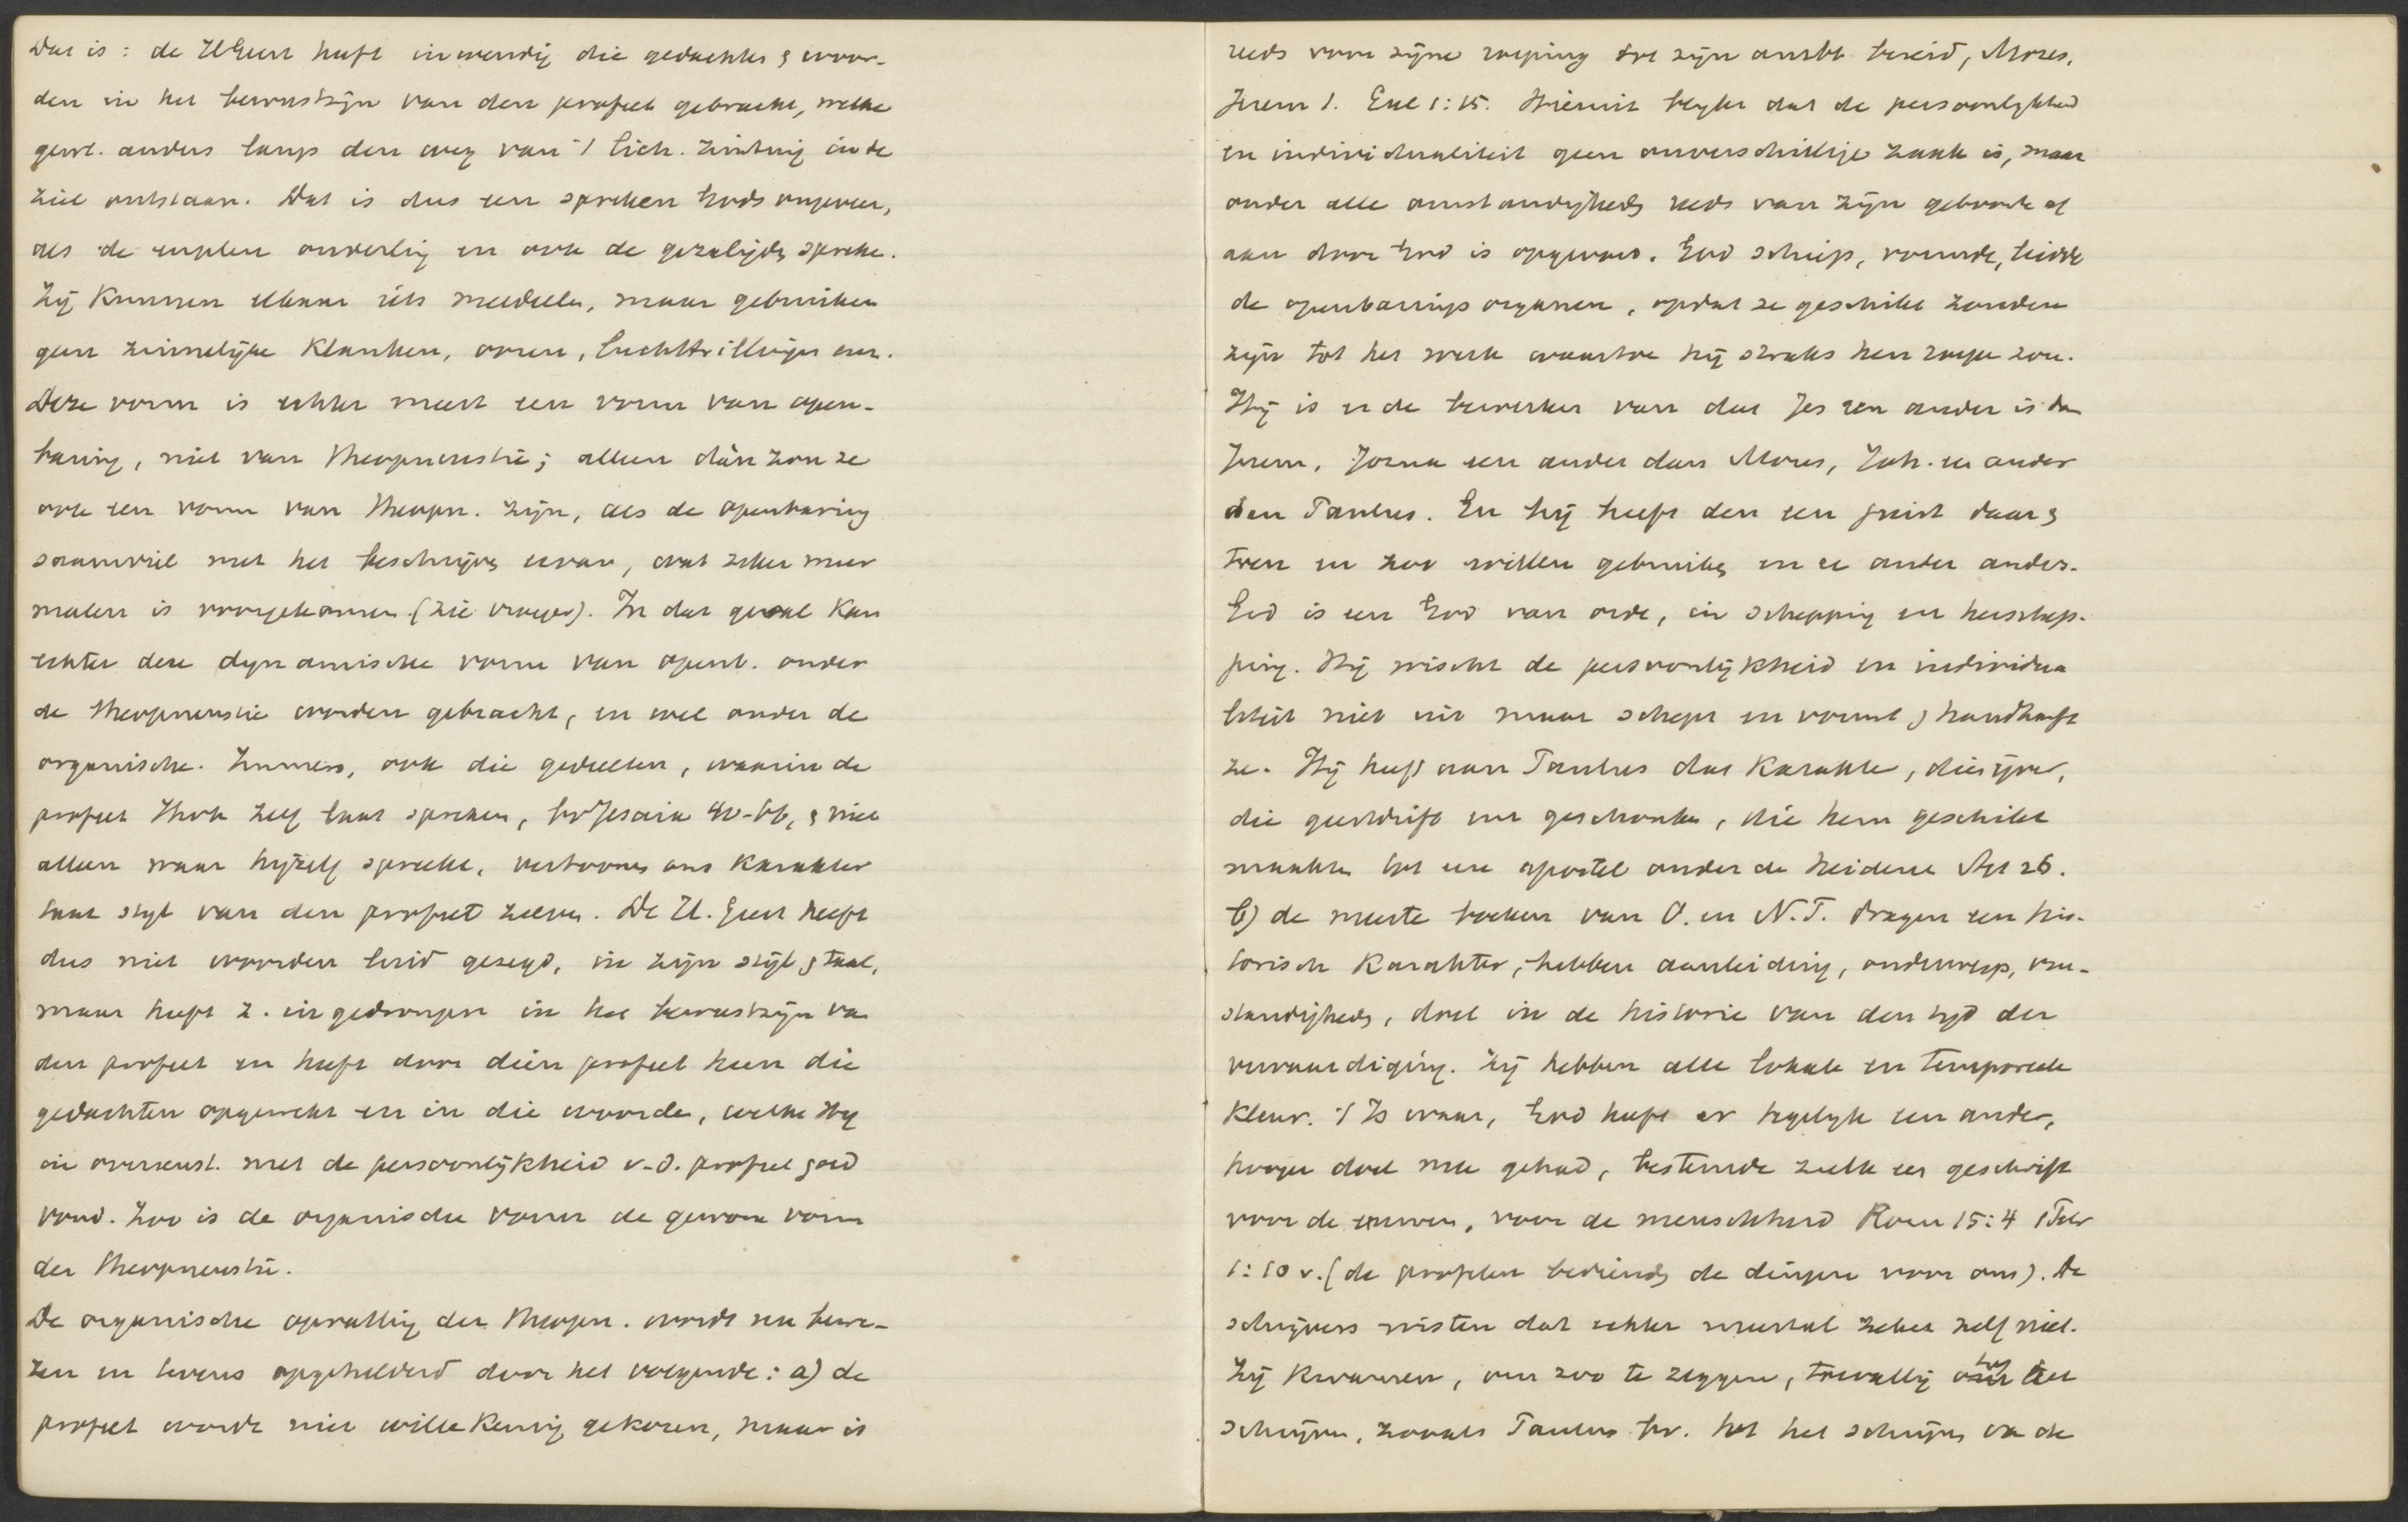 Dat is: de HGeest heeft inwendig die gedachten & woor-
den in het bewustzijn van den profeet gebracht, welke
gew. anders langs den weg van 't lich. zintuig in de
ziel ontstaan. Dat is dus een spreken Gods ongeveer,
als de engelen onderling en ook de gezaligden spreken.
Zij kunnen elkaar iets meedeelen, maar gebruiken
geen zinnelijke klanken, ooren, luchttrillingen enz.
Deze vorm is echter meest een vorm van open-
baring, niet van theopneustie; alleen dàn zou ze
ook een vorm van theopn. zijn, als de openbaring
samenviel met het beschrijven ervan, wat zeker meer
malen is voorgekomen. (zie vroeger). In dat geval kan
echter deze dynamische vorm van openb. onder
de theopneustie worden gebracht, en wel onder de
organische. Immers, ook die gedeelten, waarin de
profeet zelf laat spreken, bv Jesaia 40-66, & niet
alleen waar hijzelf spreekt, vertoonen ons karakter
taal stijl van den profeet zelven. De H. Geest heeft
dus niet woorden luid gezegd, in zijn stijl & taal,
maar heeft z. ingedrongen in het bewustzijn van
den profeet en heeft door dien profeet heen die
gedachten opgewekt en in die woorden, welke Hij
in overeenst. met de persoonlijkheid v.d. profeet goed
vond. Zoo is de organische vorm de gewone vorm
der theopneustie.
De organische opvatting der theopn. wordt nu bewe-
zen en tevens opgehelderd door het volgende: a) de
profeet wordt niet willekeurig gekozen, maar is
reeds voor zijne roeping tot zijn ambt bereid, Mozes,
Jerem 1. Gal 1:15. Hieruit blijkt dat de persoonlijkheid
en individualiteit geen onverschillige zaak is, maar
onder alle omstandigheden reeds van zijn geboorte af
aan door God is opgevoed. God schiep, vormde, leidde
de openbaringsorganen, opdat ze geschikt zouden
zijn tot het werk waartoe hij straks hen roepen zou.
Hij is er de bewerker van dat Jes een ander is dan
Jerem, Jozua een ander dan Mozes, Joh. een ander
dan Paulus. En hij heeft den een juist daar &
toen en zoo willen gebruiken en de ander anders.
God is een God van orde, in schepping en herschep-
ping. Hij wischt de persoonlijkheid en individua
liteit niet uit maar schept en vormt & handhaaft
ze. Hij heeft aan Paulus dat karakter, die ijver,
die geestdrift enz geschonken, die hem geschikt
maakten tot een apostel onder de heidenen Act 26.
b) de meeste boeken van O. en N.T. dragen een his-
torisch karakter, hebben aanleiding, onderwerp, om-
standigheden, doel in de historie van den tijd der
vervaardiging. Zij hebben alle lokale en temporeele
kleur. 't Is waar, God heeft er tegelijk een ander,
hooger doel mee gehad, bestemde zulk een geschrift
voor de eeuwen, voor de menschheid Rom 15:4 1 Petr
1:10 v. (de profeten bedienden de dingen voor ons). De
schrijvers wisten dat echter meestal zeker zelf niet.
Zij kwamen, om zoo te zeggen, toevallig tot het
schrijven, zooals Paulus bv. tot het schrijven van de